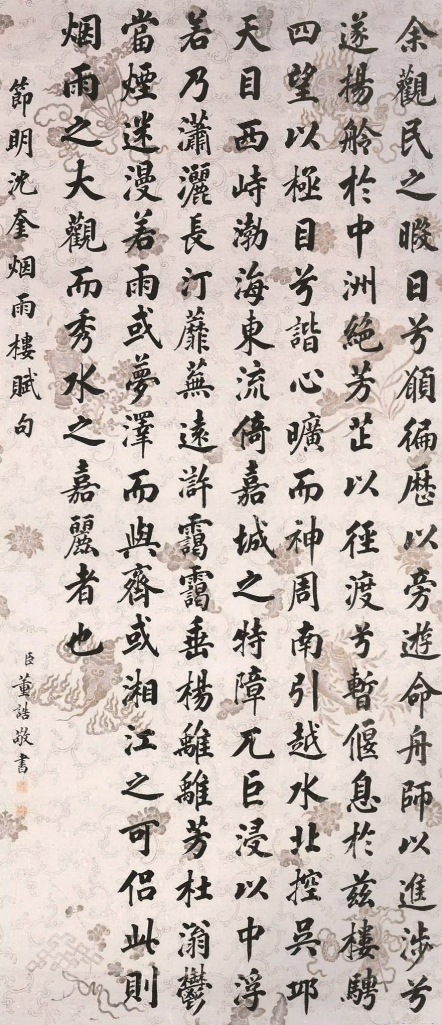 余觀民之暇日兮願徧歷以旁遊命舟師以進涉兮
遂揚舲於中洲絶芳芷以徑渡兮暫偃息於兹樓騁
四望以極目兮諧心曠而神周南引越水北控吳邛
天目西峙渤海東流倚嘉城之特障兀巨浸以中浮
若乃瀟灑長汀蘼蕪遠滸靄靄垂楊離離芳杜滃鬱
當煙迷漫若雨或夢澤而與齊或湘江之可侶此則
烟雨之大觀而秀水之嘉麗者也
節明沈奎烟雨樓賦句
臣董誥敬書